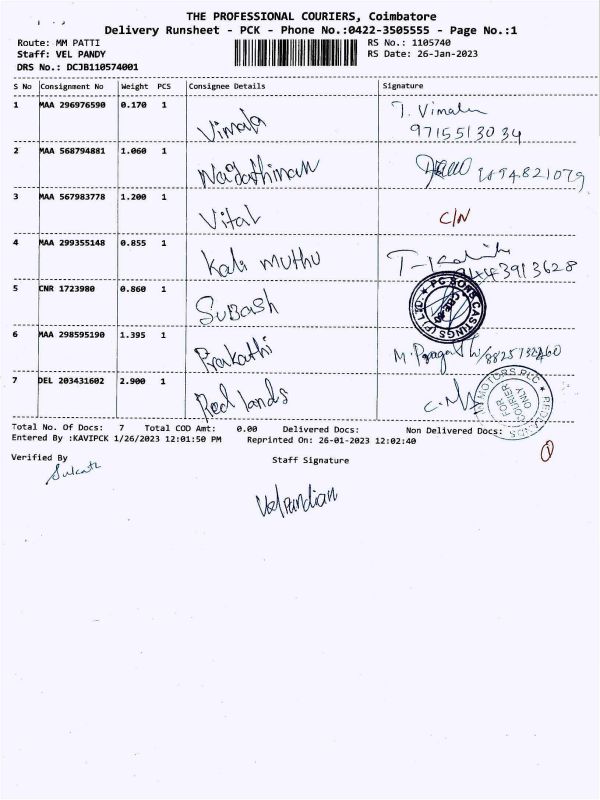 THE PROFESSIONAL COURIERS, Coimbatore
Delivery Runsheet - PCK - Phone No.:0422-3505555 - Page No.:1
Route: MM PATTI RS No.: 1105740
Staff: VEL PANDY RS Date: 26-Jan-2023
DRS No.: DCJB110574001
S No Consignment No Weight PCS Consignee Details Signature
1 MAA 296976590 0.170 1 Vimala T. Vimala
9715513034
2 MAA 568794881 1.060 1 Nagathinam
3 MAA 567983778 1.200 1 Vital C/N
4 MAA 299355148 0.855 1 Kali muthu
5 CNR 1723980 0.860 1 Subash
6 MAA 298595190 1.395 1 Prakathi
7 DEL 203431602 2.900 1 Red lands
FOR COURIER ONLY
Total No. Of Docs: 7 Total COD Amt: 0.00 Delivered Docs: Non Delivered Docs: 1
Entered By :KAVIPCK 1/26/2023 12:01:50 PM Reprinted On: 26-01-2023 12:02:40
Verified By Staff Signature
Velpandian